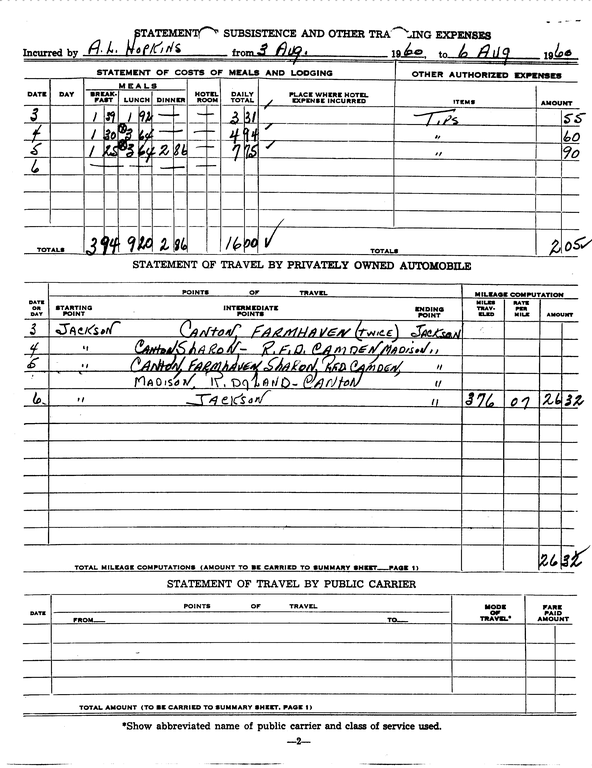 STATEMENT OF SUBSISTENCE AND OTHER TRA LING EXPENSES
Incurred by A.L. HOPKINS from 3 Aug. 1960, to 6 Aug 1960
STATEMENT OF COSTS OF MEALS AND LODGING OTHER AUTHORIZED EXPENSES
MEALS
DATE DAY BREAK-FAST LUNCH DINNER HOTEL ROOM DAILY TOTAL PLACE WHERE HOTEL EXPENSE INCURRED ITEMS AMOUNT
3 1 39 1 92 — — 3 31 ✓ Tips 55
4 1 30 3 64 — — 4 94 ✓ " 60
5 1 25 3 64 2 86 — 7 75 ✓ " 90
6 — — — —
TOTALS 3 94 9 20 2 86 16 00 ✓ TOTALS 2 05 ✓
STATEMENT OF TRAVEL BY PRIVATELY OWNED AUTOMOBILE
POINTS OF TRAVEL MILEAGE COMPUTATION
DATE OR DAY STARTING POINT INTERMEDIATE POINTS ENDING POINT MILES TRAV-ELED RATE PER MILE AMOUNT
3 JACKSON CANTON, FARMHAVEN (TWICE) JACKSON
4 " CANTON SHARON - R.F.D. CAMDEN MADISON "
5 " CANTON, FARMHAVEN SHARON, RFD CAMDEN, "
MADISON, - CANTON "
6 " JACKSON " 376 07 26 32
TOTAL MILEAGE COMPUTATIONS (AMOUNT TO BE CARRIED TO SUMMARY SHEET—PAGE 1) 26 32
STATEMENT OF TRAVEL BY PUBLIC CARRIER
DATE POINTS OF TRAVEL MODE OF TRAVEL* FARE PAID AMOUNT
FROM— TO—
TOTAL AMOUNT (TO BE CARRIED TO SUMMARY SHEET. PAGE 1)
*Show abbreviated name of public carrier and class of service used.
—2—